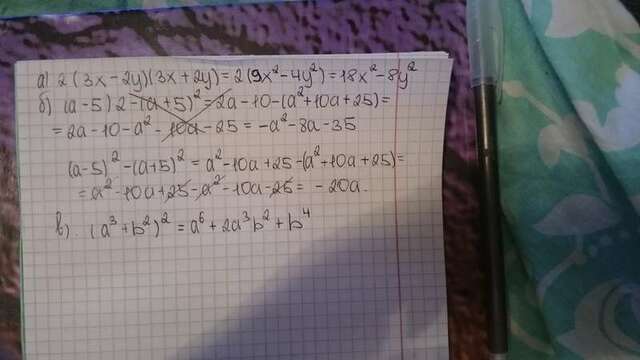 а) 2(3x-2y)(3x+2y)=2(9x²-4y²)=18x²-8y²
б) (a-5)2-(a+5)²=2a-10-(a²+10a+25)=
=2a-10-a²-10a-25=-a²-8a-35
(a-5)²-(a+5)²=a²-10a+25-(a²+10a+25)=
=a²-10a+25-a²-10a-25=-20a.
в). (a³+b²)²=a⁶+2a³b²+b⁴